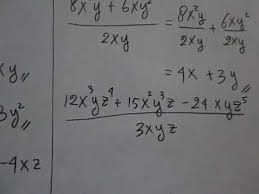 8x²y + 6xy² / 2xy = 8x²y / 2xy + 6xy² / 2xy
= 4x + 3y //
xy //
12x³yz⁴ + 15x²y³z - 24xyz⁵ / 3xyz
3y² //
-4xz